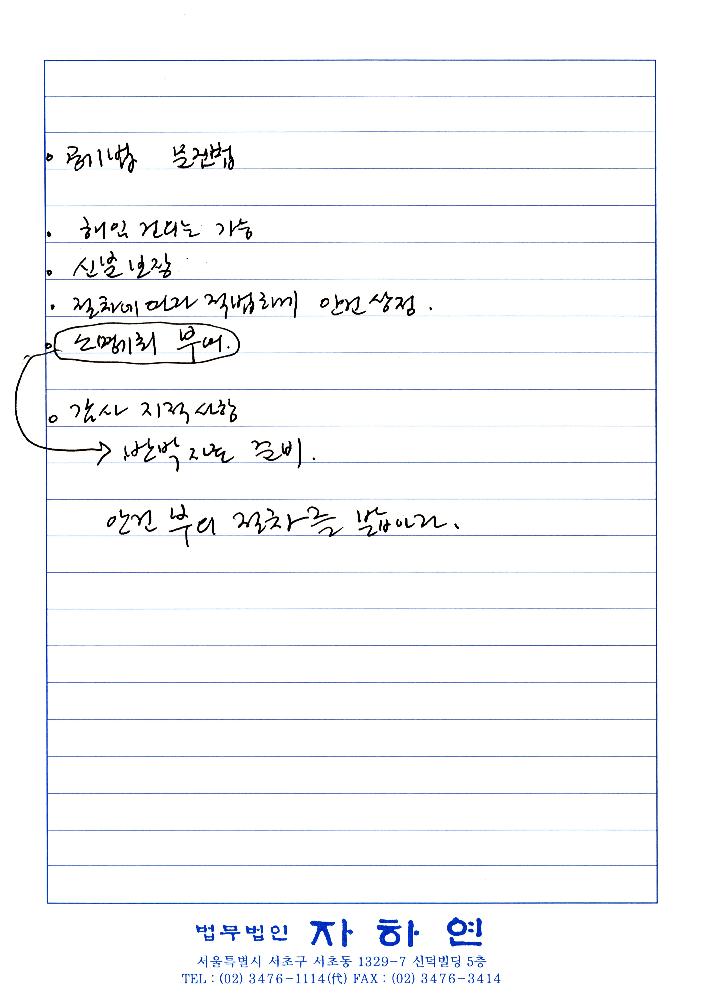 • 공기법 불전법
• 해임 건의는 가능
• 신분보장
• 절차에 따라 적법하게 안건상정.
• 소명기회 부여.
• 감사 지적사항
→ 반박자료 준비.
안건 부의 절차를 밟아라.
법무법인 자하연
서울특별시 서초구 서초동 1329-7 신덕빌딩 5층
TEL : (02) 3476-1114(代) FAX : (02) 3476-3414